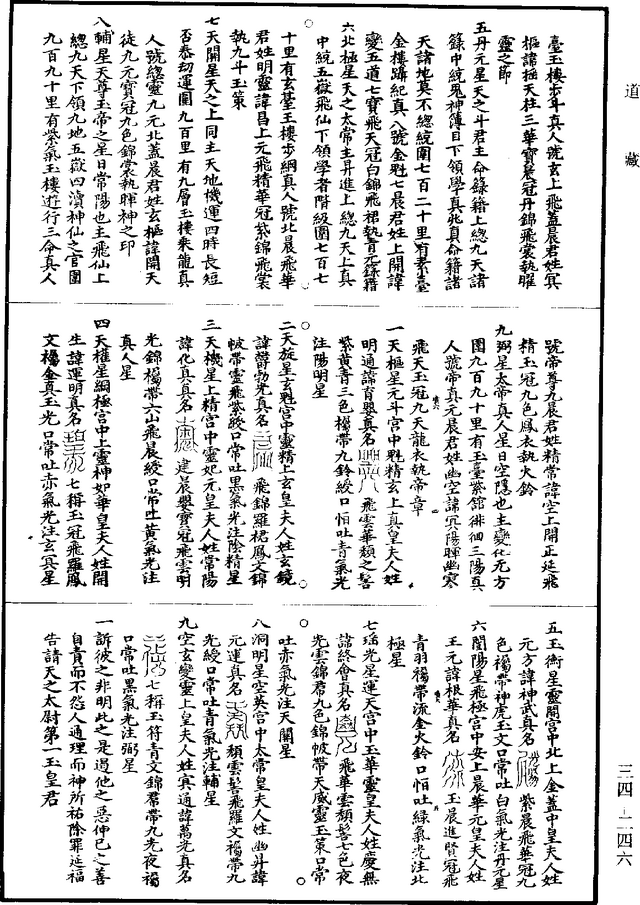 道藏
臺玉樓步斗真人號玄上飛蓋晨君姓冥
樞諱搖天柱三華寶晨冠丹錦飛裳執曜
靈之節
五丹元星天之斗君主命錄籍上總九天諸
籙中統鬼神簿目下領學真死真命籍諸
天諸地莫不總統圍七百二十里有素臺
金樓躡紀真人號金魁七晨君姓上開諱
變五道七寶飛天冠白錦飛裙執青元錄籍
六北極星天之太常主昇進上總九天上真
中統五嶽飛仙下領學者階級圍七百七
十里有玄臺玉樓步綱真人號北晨飛華
君姓明靈諱昌上元飛精華冠紫錦飛裳
執九斗玉策
七天關星天之上同主天地機運四時長短
否泰劫運圍九百里有九層玉樓乘龍真
人號總靈九元北蓋晨君姓玄樞諱開天
徒九元寶冠九色錦裳執暉神之印
八輔星天尊玉帝之星日常陽也主飛仙上
總九天下領九地五嶽四瀆神仙之官圍
九百九十里有紫氣玉樓遊行三命真人
號帝尊九晨君姓精常諱空上開正延飛
精玉冠九色鳳衣執火鈴
九弼星太帝真人星日空隱也主變化无方
圍九百九十里有玉臺紫館徘徊三陽真
人號帝真元晨君姓幽空諱冥陽暉幽寒
飛天玉冠九天龍衣執帝章
一天樞星元斗宮中魁精玄上真皇夫人姓
明通諱育嬰真名 飛雲華頹之髻
紫黃青三色襡帶九鈴綬口恒吐青氣光
注陽明星
二天旋星玄魁宮中靈精上玄皇夫人姓玄鏡
諱鬱勃光真名 飛錦羅裙鳳文錦
帔帶靈飛紫綬口常吐黑氣光注陰精星
三天機星上精宮中靈妃元皇夫人姓常陽
諱化真真名 建晨嬰寶冠飛雲明
光錦襡帶六山飛晨綬口常吐黃氣光注
真人星
四天權星綱極宮中上靈神妃華皇夫人姓開
生諱運明真名 七稱玉冠飛羅鳳
文襡金真玉光口常吐赤氣光注玄冥星
五玉衡星靈關宮中北上金蓋中皇夫人姓
元方諱神武真名 紫晨飛華冠九
色襡帶神虎玉文口常吐白氣光注丹元星
六闓陽星飛極宮中安上晨華元皇夫人姓
王元諱根華真名 玉晨進賢冠飛
青羽襡帶流金火鈴口恒吐綠氣光注北
極星
七瑤光星運天宮中玉華靈皇夫人姓慶無
諱終會真名 飛華雲頹髻七色夜
光雲錦帬九色錦帔帶天威靈玉策口常
吐赤氣光注天關星
八洞明星空英宮中太常皇夫人姓幽斗諱
元運真名 頹雲髻飛羅文襡帶九
光綬口常吐青氣光注輔星
九空玄變靈上皇夫人姓冥通諱萬光真名
七稱玉符青文錦帬帶九光夜襡
口常吐黑氣光注弼星
一訴彼之非明此之是遏他之惡伸己之善
自責而不怨人通理而神所祐除罪延福
告請天之太尉第一玉皇君
三四—二四六